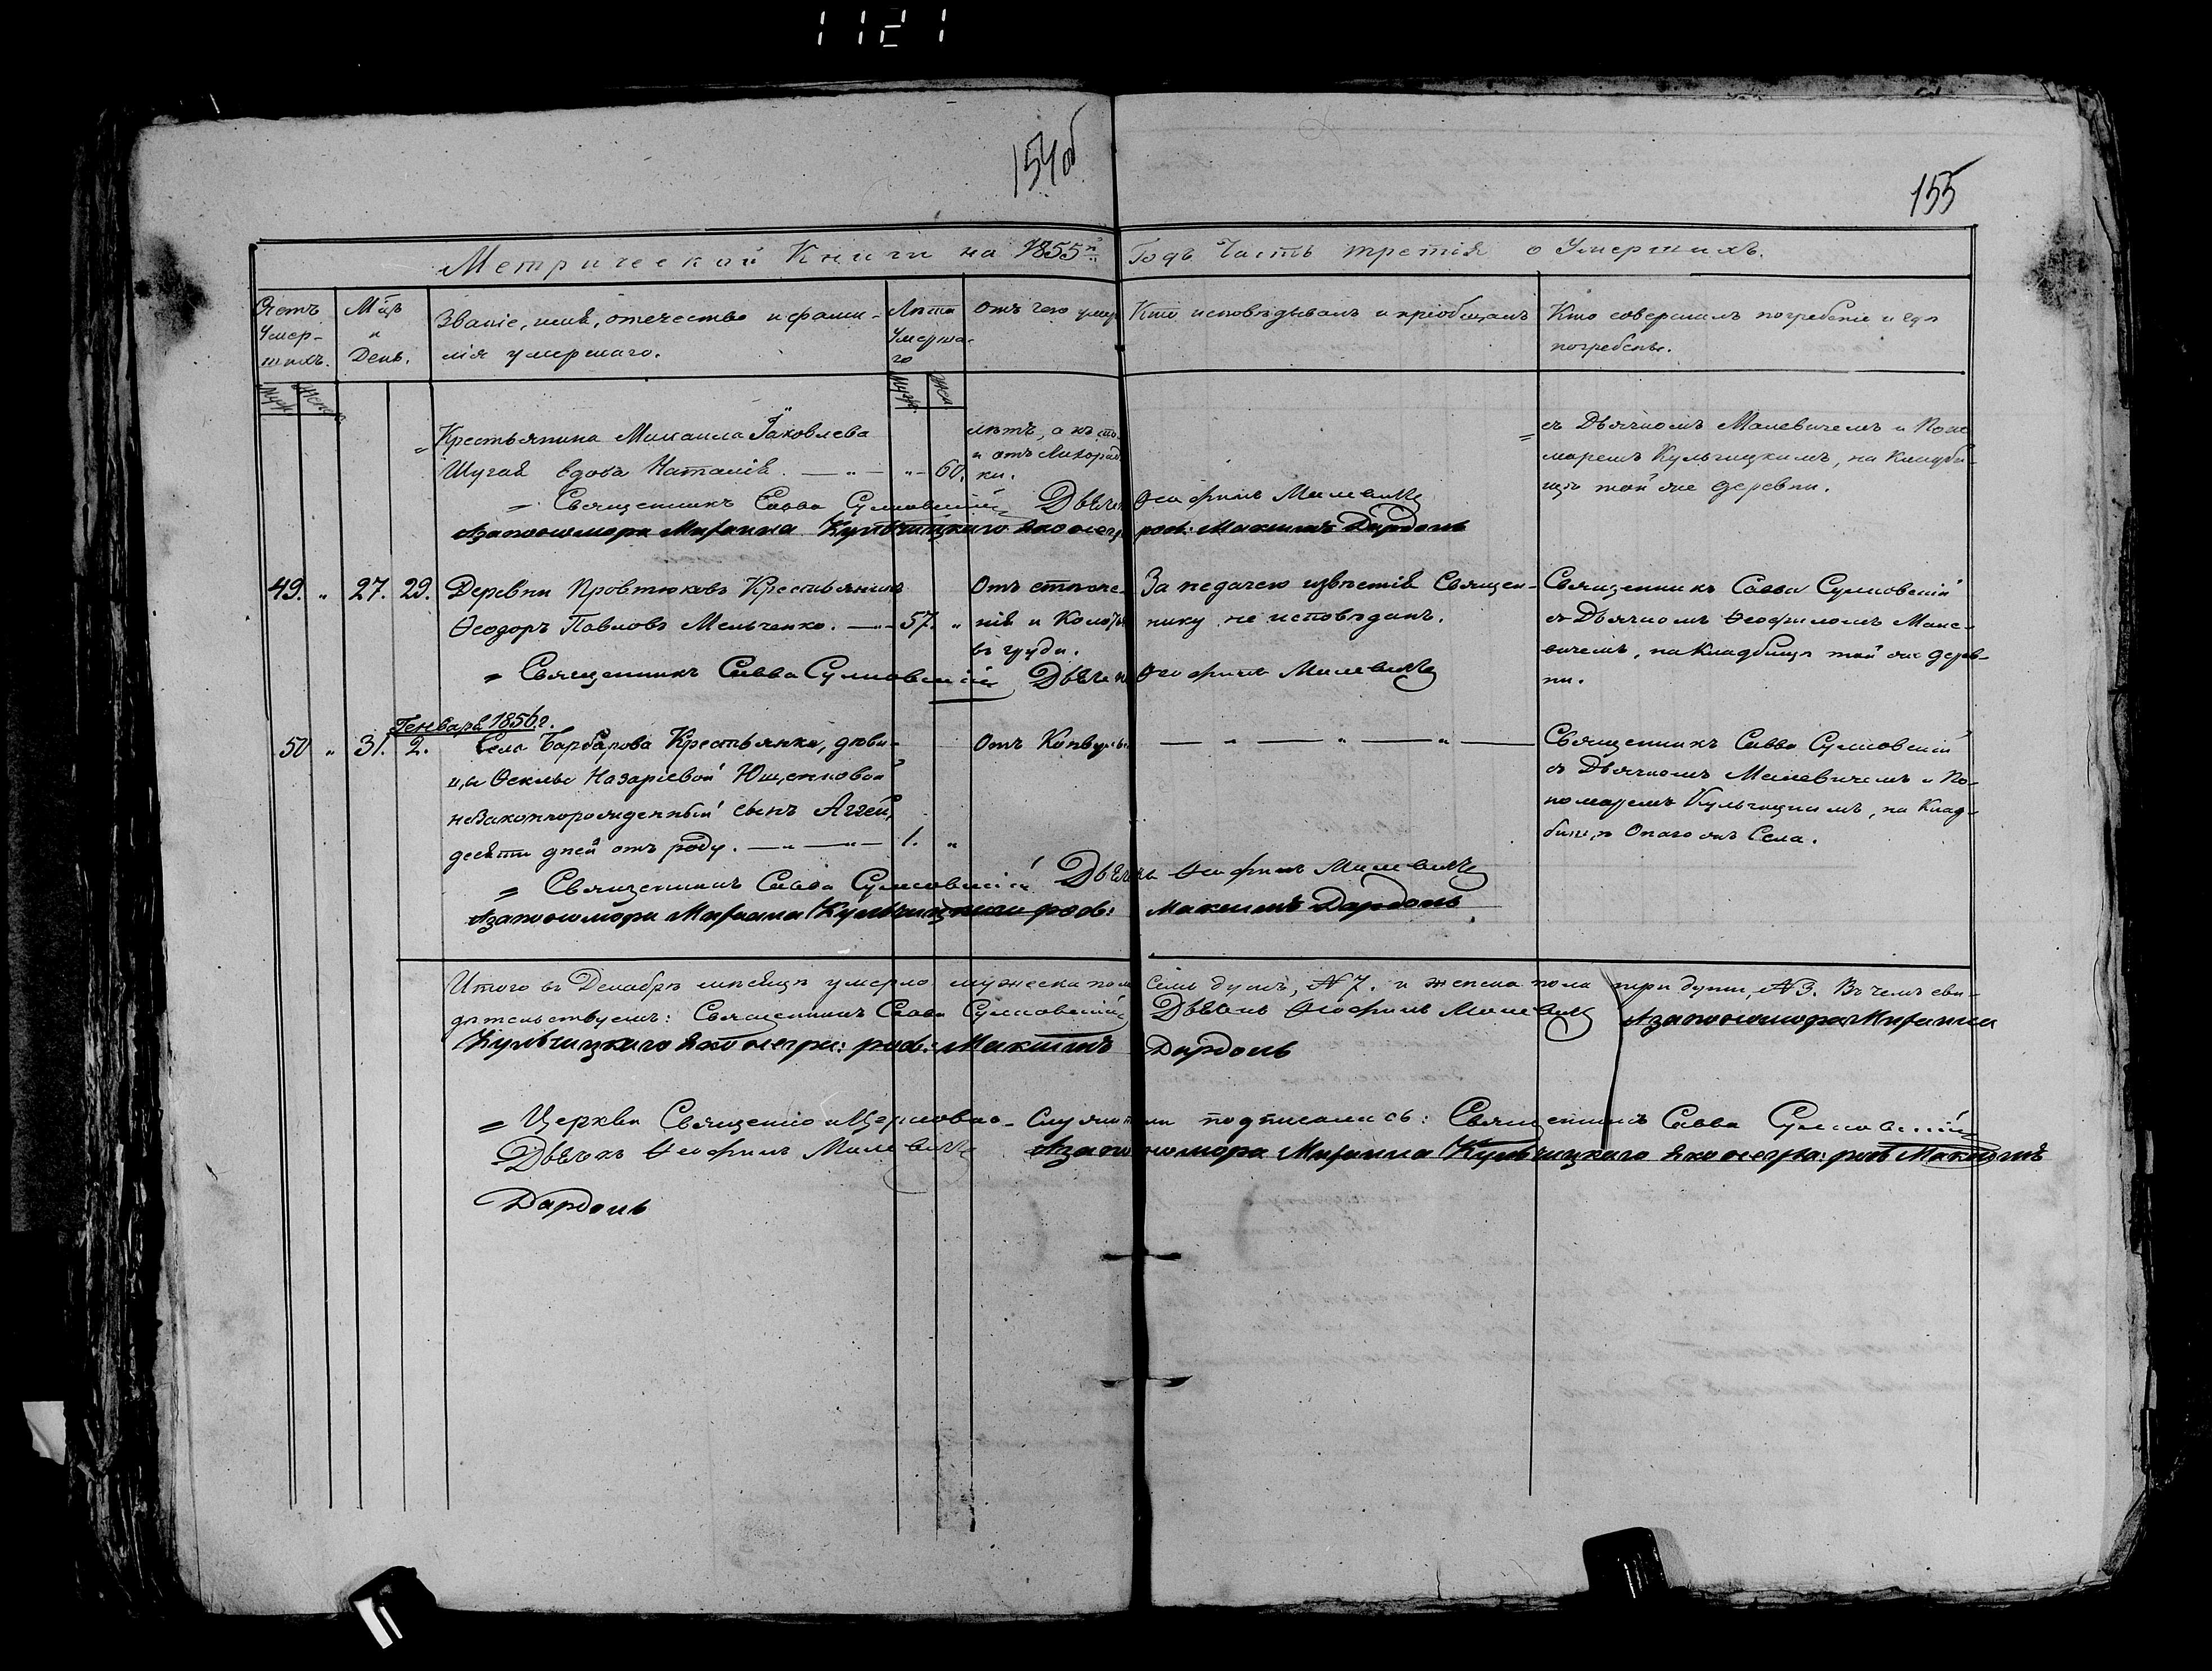 1121
154об
155
Метрической Книги на 1855й Годъ Часть третія о Умершихъ.
Счетъ Умер-шихъ.
Мцъ и День.
Званіе, имя, отечество и фами-
лія умершаго.
Лѣта Умерша-го
Отъ чего умер
Кто исповѣдывалъ и пріобщалъ
Кто совершалъ погребеніе и гдѣ
погребены.
Муж. Женск.
Муж. Жен.
Крестьянина Михаила Іаковлева
Шугая вдова Наталія. 60.
лѣтъ, а къ то
и отъ Лихорад
ки.
съ Дьячкомъ Малевичемъ и Поно
маремъ Кульчицкимъ, на Кладби-
щѣ той же деревни.
Священникъ Савва Сулковскій Дьячек Ѳеофилъ Малевичъ
Азапономора Михаила Кульчицкаго ров: Максимъ Дардонь
49. „ 27. 29. Деревни Провтюковъ Крестьянинъ
Ѳеодоръ Павловъ Мельченко. 57. „
Отъ стече-
нія и Колотья
въ груди.
За недачею извѣстія Священ-
нику не исповѣданъ.
Священникъ Савва Сулковскій
съ Дьячкомъ Ѳеофиломъ Мале-
вичемъ, на Кладбищѣ той же дерев-
ни.
Священникъ Савва Сулковскій Дьячекъ Ѳеофилъ Малевичъ
Генваря 1856г.
50 „ 31. 2. Села Барбарова Крестьянки, дѣви-
цы Ѳеклы Назаріевой Ющенковой
незаконнорожденный сынъ Аггей,
десяти дней отъ роду. 1. „
Отъ Конвульс
Священникъ Савва Сулковскій
съ Дьячкомъ Малевичемъ и По-
номаремъ Кульчицкимъ, на Клад-
бищѣ Онаго же Села.
Священникъ Савва Сулковскій Дьячекъ Ѳеофилъ Малевичъ
Азапономора Михаила Кульчицкаго ров: Максимъ Дардонь
Итого въ Декабрѣ мѣсяцѣ умерло мужеска пола Семь душъ, №7. и женска пола три души, №3. Въ чемъ сви-
дѣтельствуемъ: Священникъ Савва Сулковскій Дьячекъ Ѳеофилъ Малевичъ Азапономора Михаила
Кульчицкаго ров: Максимъ Дардонь
Церкви Священно и Церковно-Служители подписались: Священникъ Савва Сулковскій
Дьячекъ Ѳеофилъ Малевичъ Азапономора Михаила Кульчицкаго ров Максимъ
Дардонь